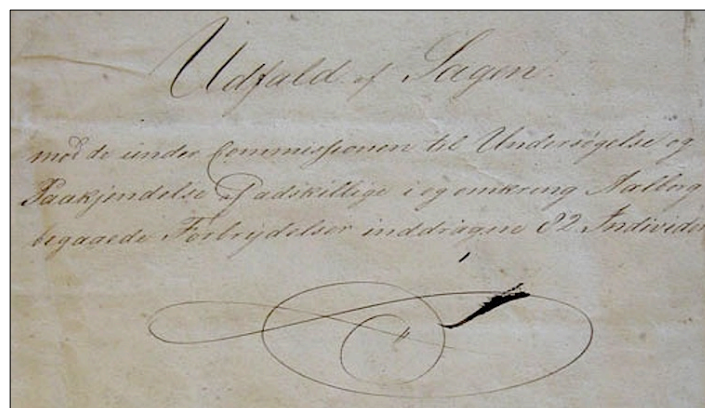 Udfald af Sagen.
mod de under Commissionen til Undersøgelse og
Paakjendelse af adskillige i og omkring Aalborg
begaaede Forbrydelser inddragne 82 Individer